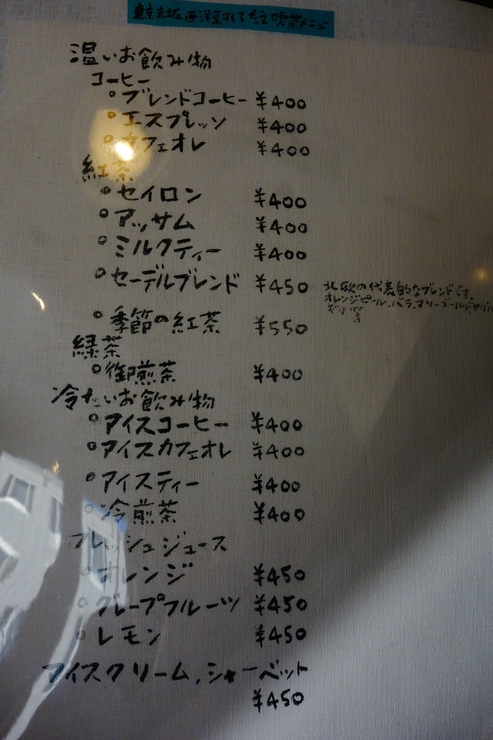 温いお飲み物
コーヒー
ブレンドコーヒー ¥400
エスプレッソ ¥400
カフェオレ ¥400
紅茶
セイロン ¥400
アッサム ¥400
ミルクティー ¥400
セーデルブレンド ¥450
北欧の代表的なブレンドです。
オレンジピール、バラ、マリーゴールド
季節の紅茶 ¥550
緑茶
御煎茶 ¥400
冷たいお飲み物
アイスコーヒー ¥400
アイスカフェオレ ¥400
アイスティー ¥400
冷煎茶 ¥400
フレッシュジュース
オレンジ ¥450
グレープフルーツ ¥450
レモン ¥450
アイスクリーム、シャーベット
¥450